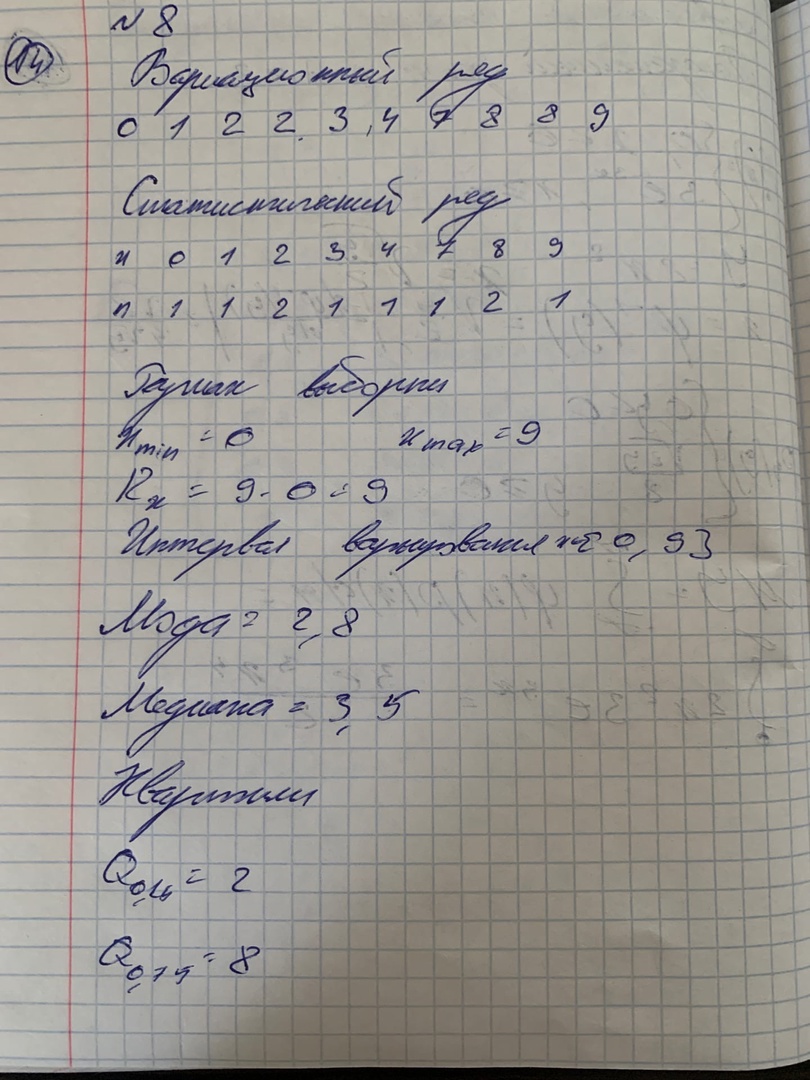 14
№ 8
Вариационный ряд
0 1 2 2 3 4 7 8 8 9
Статистический ряд
x 0 1 2 3 4 7 8 9
n 1 1 2 1 1 1 2 1
Размах выборки
x min = 0 x max = 9
R x = 9 - 0 = 9
Интервал варьирования x ∈ [0, 9]
Мода = 2, 8
Медиана = 3, 5
Квартили
= 2
Q 0,75 = 8